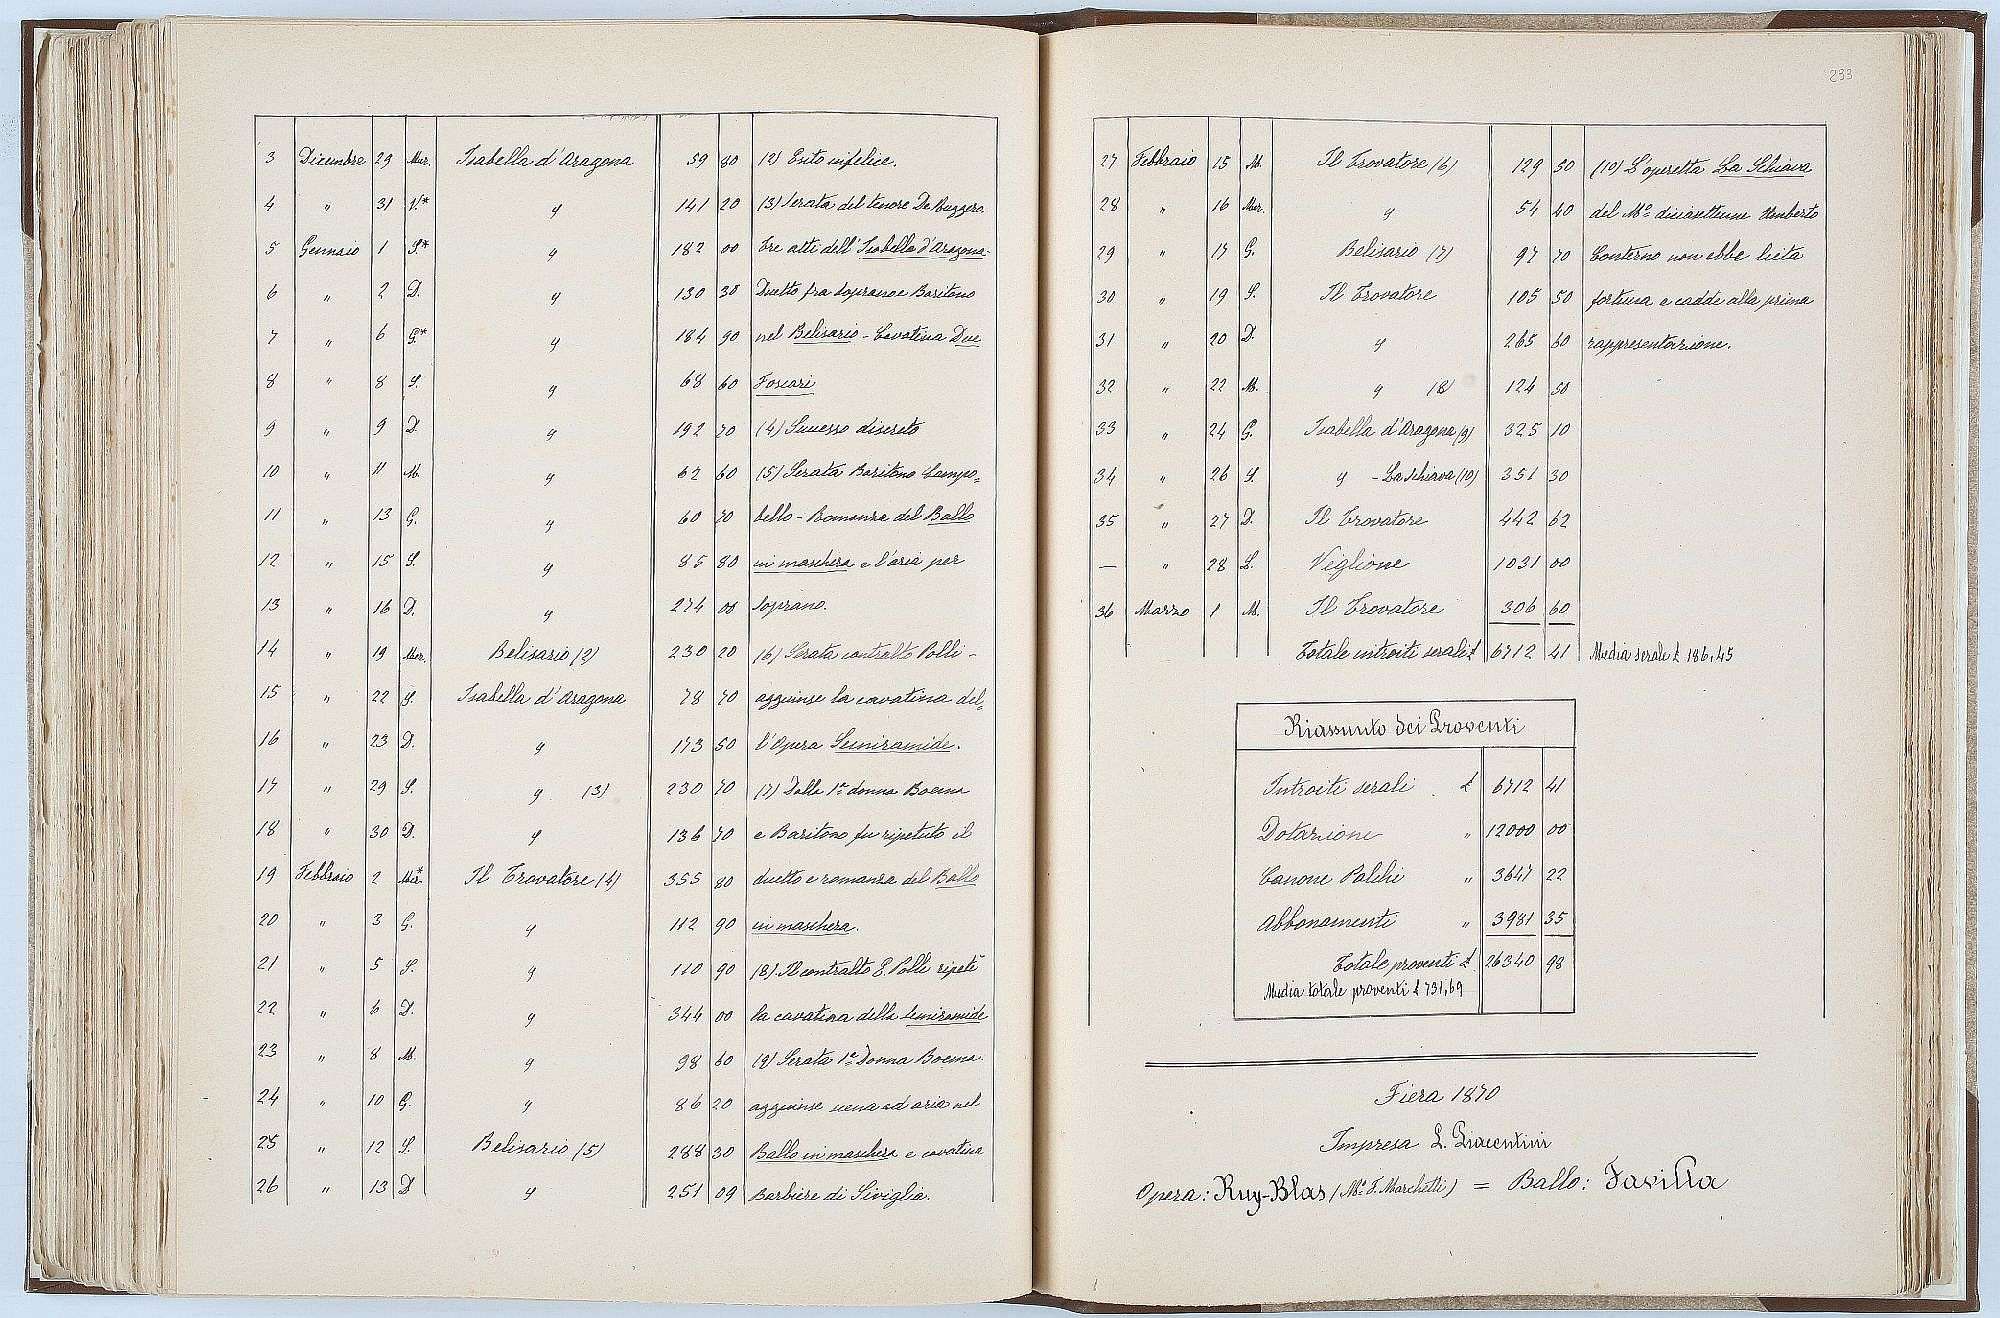 3 Dicembre 29 Mer. Isabella d'Aragona 59 80 (2) Esito infelice.
4 " 31 V.* " 141 20 (3) Serata del tenore De Ruggero
5 Gennaio 1 S.* " 182 00 tre atti dell'Isabella d'Aragona.
6 " 2 D. " 130 30 Duetto fra soprano e Baritono
7 " 6 G.* " 184 90 nel Belisario - Cavatina Due
8 " 8 S. " 68 60 Foscari
9 " 9 D. " 192 70 (4) Successo discreto
10 " 11 M. " 62 60 (5) Serata Baritono Campo=
11 " 13 G. " 60 70 bello - Romanza del Ballo
12 " 15 S. " 85 80 in maschera e l'aria per
13 " 16 D. " 274 00 soprano.
14 " 19 Mer. Belisario (2) 230 20 (6) Serata contralto Polli -
15 " 22 S. Isabella d'Aragona 78 70 aggiunse la cavatina del=
16 " 23 D. " 173 50 l'Opera Semiramide.
17 " 29 S. " (3) 230 70 (7) Dalla 1ª donna Boema
18 " 30 D. " 136 70 e Baritono fu ripetuto il
19 Febbraio 2 Mer.* Il Trovatore (4) 355 80 duetto e romanza del Ballo
20 " 3 G. " 112 90 in maschera.
21 " 5 S. " 110 90 (8) Il contralto E. Polli ripetè
22 " 6 D. " 344 00 la cavatina della Semiramide
23 " 8 M. " 98 60 (9) Serata 1ª Donna Boema
24 " 10 G. " 86 20 aggiunse scena ed aria nel
25 " 12 S. Belisario (5) 288 30 Ballo in maschera e cavatina
26 " 13 D " 251 09 Barbiere di Siviglia.
233
27 Febbraio 15 M. Il Trovatore (6) 129 50 (10) L'operetta La Schiava
28 " 16 Mer. " 54 40 del Mº diciasettenne Umberto
29 " 17 G. Belisario (7) 97 70 Conterno non ebbe lieta
30 " 19 S. Il Trovatore 105 50 fortuna e cadde alla prima
31 " 20 D. " 265 60 rappresentazione.
32 " 22 M. " (8) 124 50
33 " 24 G. Isabella d'Aragona (9) 325 10
34 " 26 S. " - La Schiava (10) 351 30
35 " 27 D. Il Trovatore 442 62
— " 28 L. Veglione 1031 00
36 Marzo 1 M. Il Trovatore 306 60
Totale introiti serali £ 6712 41 Media serale £ 186,45
Riassunto dei Proventi
Introiti serali £ 6712 41
Dotazione " 12000 00
Canone Palchi " 3647 22
Abbonamenti " 3981 35
Totale proventi £ 26340 98
Media totale proventi £ 731,69
Fiera 1870
Impresa L. Piacentini
Opera: Ruy-Blas (Mº F. Marchetti) = Ballo: Favilla